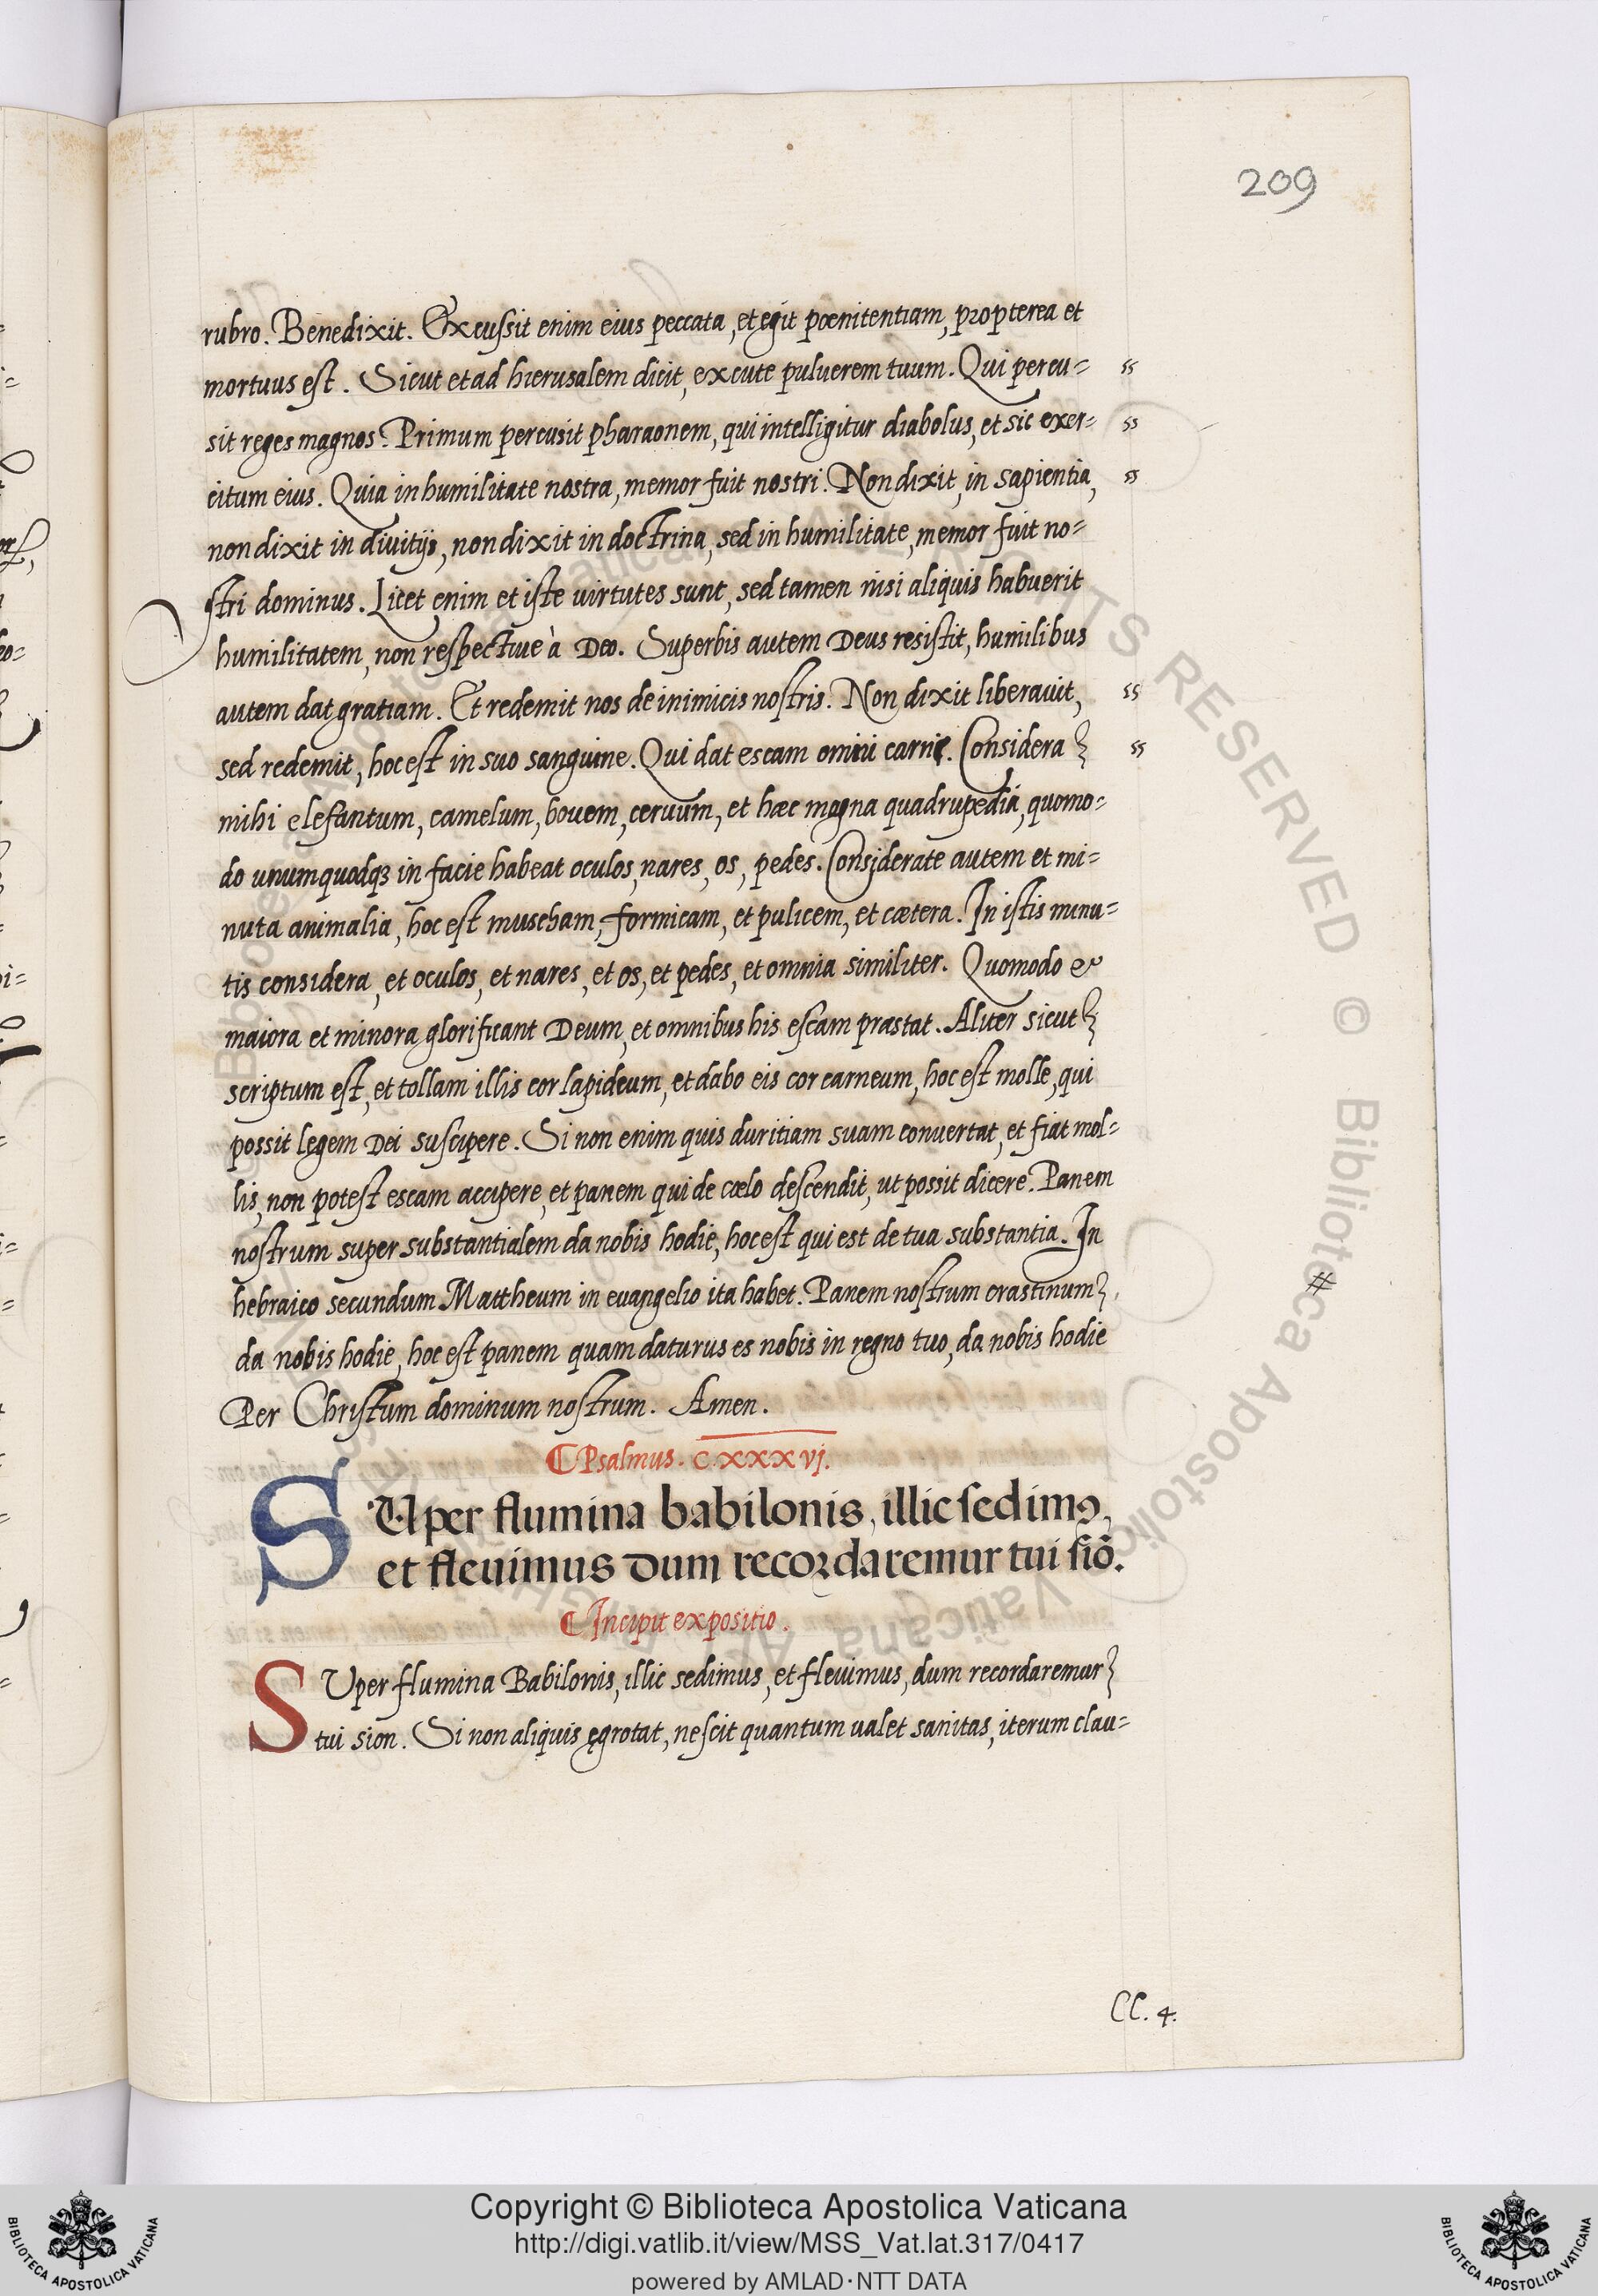 209
rubro. Benedixit. Excussit enim eius peccata, et egit pœnitentiam, propterea et
mortuus est. Sicut et ad hierusalem dicit, excute puluerem tuum. Qui percu=
sit reges magnos. Primum percusit pharaonem, qui intelligitur diabolus, et sic exer=
citum eius. Quia in humilitate nostra, memor fuit nostri. Non dixit, in sapientia,
non dixit in diuitijs, non dixit in doctrina, sed in humilitate, memor fuit no=
stri dominus. Licet enim et iste uirtutes sunt, sed tamen nisi aliquis habuerit
humilitatem, non respectiue à Deo. Superbis autem Deus resistit, humilibus
autem dat gratiam. Et redemit nos de inimicis nostris. Non dixit liberauit,
sed redemit, hoc est in suo sanguine. Qui dat escam omni carni. Considera
mihi elefantum, camelum, bouem, ceruum, et hæc magna quadrupedia, quomo=
do unumquodqꝫ in facie habeat oculos, nares, os, pedes. Considerate autem et mi=
nuta animalia, hoc est muscham, formicam, et pulicem, et cætera. In istis minu=
tis considera, et oculos, et nares, et os, et pedes, et omnia similiter. Quomodo &
maiora et minora glorificant Deum, et omnibus his escam præstat. Aliter sicut
scriptum est, et tollam illis cor lapideum, et dabo eis cor carneum, hoc est molle, qui
possit legem Dei suscipere. Si non enim quis duritiam suam conuertat, et fiat mol=
lis, non potest escam accipere, et panem qui de cœlo descendit, ut possit dicere. Panem
nostrum super substantialem da nobis hodie, hoc est qui est de tua substantia. In
hebraico secundum Mattheum in euangelio ita habet. Panem nostrum crastinum
#
da nobis hodie, hoc est panem quam daturus es nobis in regno tuo, da nobis hodie
Per Christum dominum nostrum. Amen.
¶ Psalmus. CXXXVJ.
SUper flumina babilonis, illic sedimꝰ,
et fleuimus dum recordaremur tui siõ.
¶ Incipit expositio.
SUper flumina Babilonis, illic sedimus, et fleuimus, dum recordaremur
tui sion. Si non aliquis ęgrotat, nescit quantum ualet sanitas, iterum clau=
CC. 4.
Copyright © Biblioteca Apostolica Vaticana
http://digi.vatlib.it/view/MSS_Vat.lat.317/0417
powered by AMLAD·NTT DATA
BIBLIOTECA APOSTOLICA VATICANA
BIBLIOTECA APOSTOLICA VATICANA